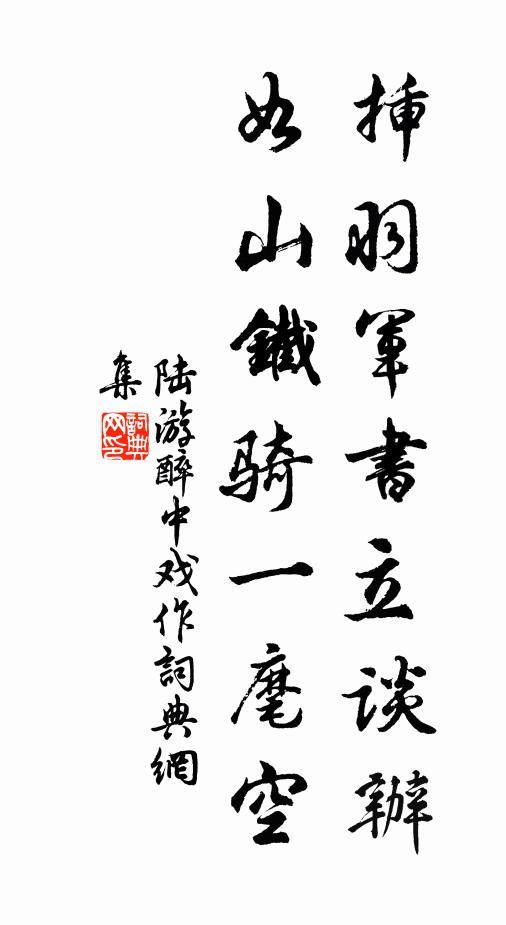 揷羽軍書立談辦
如山鐵骑一麾空
陆游醉中戏作詞典網
集
詞典网印